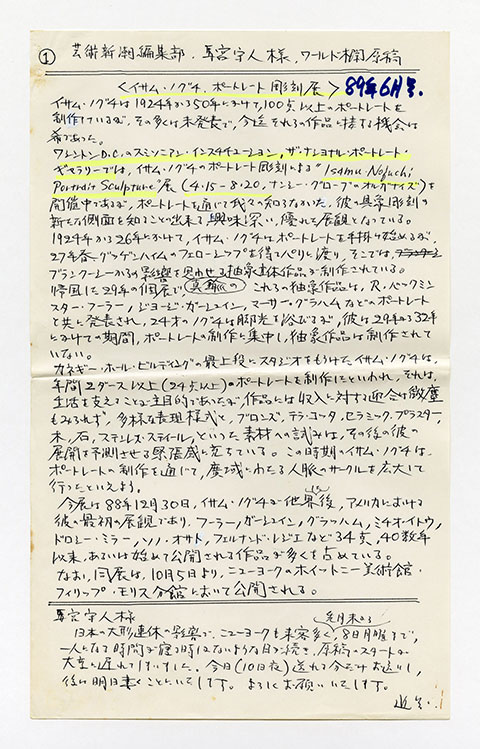 ① 芸術新潮編集部. 宮宇人様, ワールド欄原稿
〈イサム・ノグチ、ポートレート彫刻展〉 89年6月号.
イサム・ノグチは1924年から50年にかけて、100点以上のポートレートを
制作しているが、その多くは未発表で、今迄それらの作品に接する機会は
希であった。
ワシントンD.C.のスミソニアン・インスチチューション、ザ・ナショナル・ポートレート・
ギャラリーでは、イサム・ノグチのポートレート彫刻による“Isamu Noguchi
Portrait Sculpture”展 (4.15-8.20, ナンシー・グローブのオルガナイズ)を
開催中であるが、ポートレートを通じて我々の知らなかった、彼の具象彫刻の
新たな側面を知ることの出来る興味深い、優れた展観となっている。
1924年から26年にかけて、イサム・ノグチはポートレートを手掛け始めるが、
27年春、グッゲンハイムのフェローシップを得てパリに渡り、そこでは、
ブランクーシからの影響を思わせる抽象立体作品が制作されている。
帰国した29年の個展で これらの抽象作品は、R・バックミン
スター・フーラー、ジョージ・ガーシュイン、マーサー・グラハムなどのポートレート
と共に発表され、24才のノグチは脚光を浴びるが、彼は29年から32年
にかけての期間、ポートレートの制作に集中し、抽象作品は制作されて
いない。
カネギー・ホール・ビルディングの最上段にスタジオをもうけたイサム・ノグチは、
年間2ダース以上(24点以上)のポートレートを制作したといわれ、それは、
生活を支えることが主目的であったが、作品には収入に対する迎合は微塵
もみられず、多様な表現様式と、ブロンズ、テラ・コッタ、セラミック、プラスター、
木、石、ステンレス・スティール、といった素材への試みは、その後の彼の
展開を予測させる緊張感に充ちている。この時期のイサム・ノグチは、
ポートレートの制作を通じて、広域にわたる人脈のサークルを広大して
行ったといえよう。
今展は88年12月30日、イサム・ノグチが他界した後、アメリカにおける
彼の最初の展観であり、フーラー、ガーシュイン、グラハム、ミチオ・イトウ、
ドロシー・ミラー、ソノ・オサト、フェルナンド・レジエなど34点、40数年
以来、あるいは始めて公開される作品が多くを占めている。
なお、同展は、10月5日より、ニューヨークのホイットニー美術館・
フィリップ・モリス分館において公開される。
宮宇人様
先月末から
日本の大形連休の影響で、ニューヨークも来客多く、8日月曜まで、
一人になる時間が寝る時しかないような日が続き、原稿のスタートが
大変に遅れてしまいました。今日(10日夜)送れる分だけお送りし、
後は明日書くことにいたします。よろしくお願いいたします。